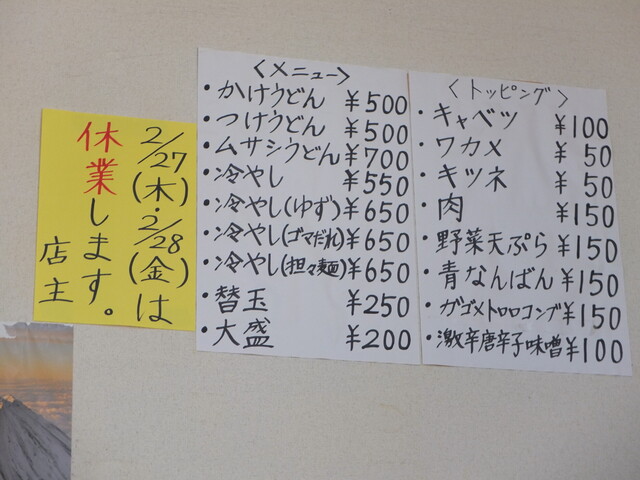 2/27(木)・2/28(金)は
休業します。
店主
〈メニュー〉
・かけうどん ¥500
・つけうどん ¥500
・ムサシうどん ¥700
・冷やし ¥550
・冷やし(ゆず) ¥650
・冷やし(ゴマだれ) ¥650
・冷やし(担々麺) ¥650
・替玉 ¥250
・大盛 ¥200
〈トッピング〉
・キャベツ ¥100
・ワカメ ¥50
・キツネ ¥50
・肉 ¥150
・野菜天ぷら ¥150
・青なんばん ¥150
・ガゴメトロロコンブ ¥150
・激辛唐辛子味噌 ¥100